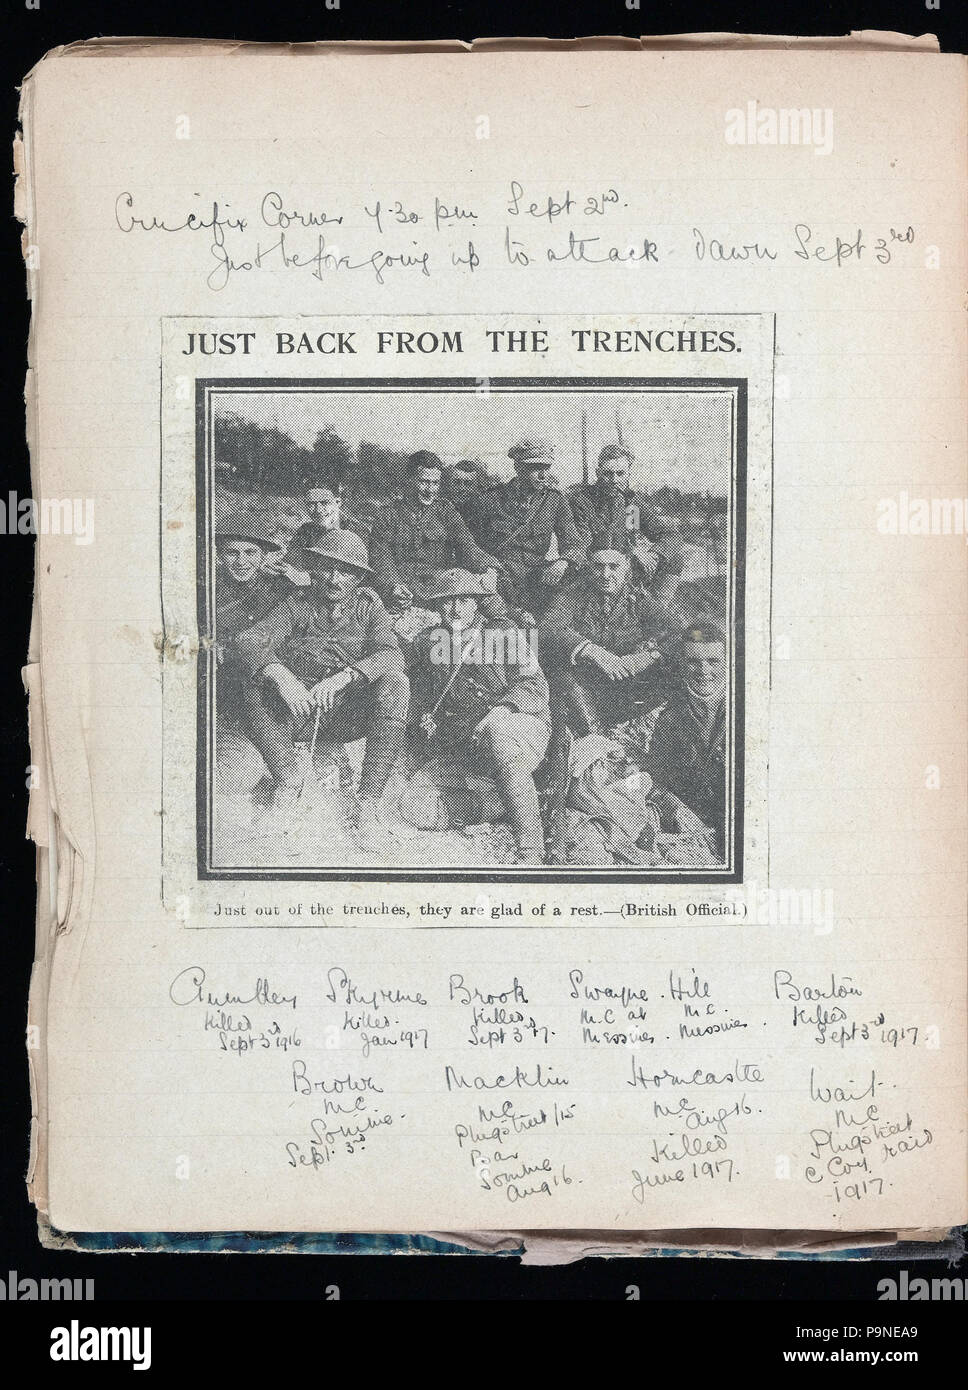 Crucifix Corner 4.30 p.m. Sept 2nd.
Just before going up to attack Dawn Sept 3rd
JUST BACK FROM THE TRENCHES.
Just out of the trenches, they are glad of a rest.—(British Official.)
Skyrme Brook Swayne . Hill Barton
Killed Killed. Killed M.C at M.C. Killed
Sept 3rd 1916 Jan 1917 Sept 3rd 17. Messines. Messines. Sept 3rd 1917.
Brown Macklin Horncastle Wait.
MC MC MC MC
Somme. Plugstreet/15 Aug 16. Plugstreet
Sept. 3rd Bar Killed C Coy raid
Somme June 1917. 1917.
Aug 16.
alamy
alamy
Image ID: P9NEA9
www.alamy.com